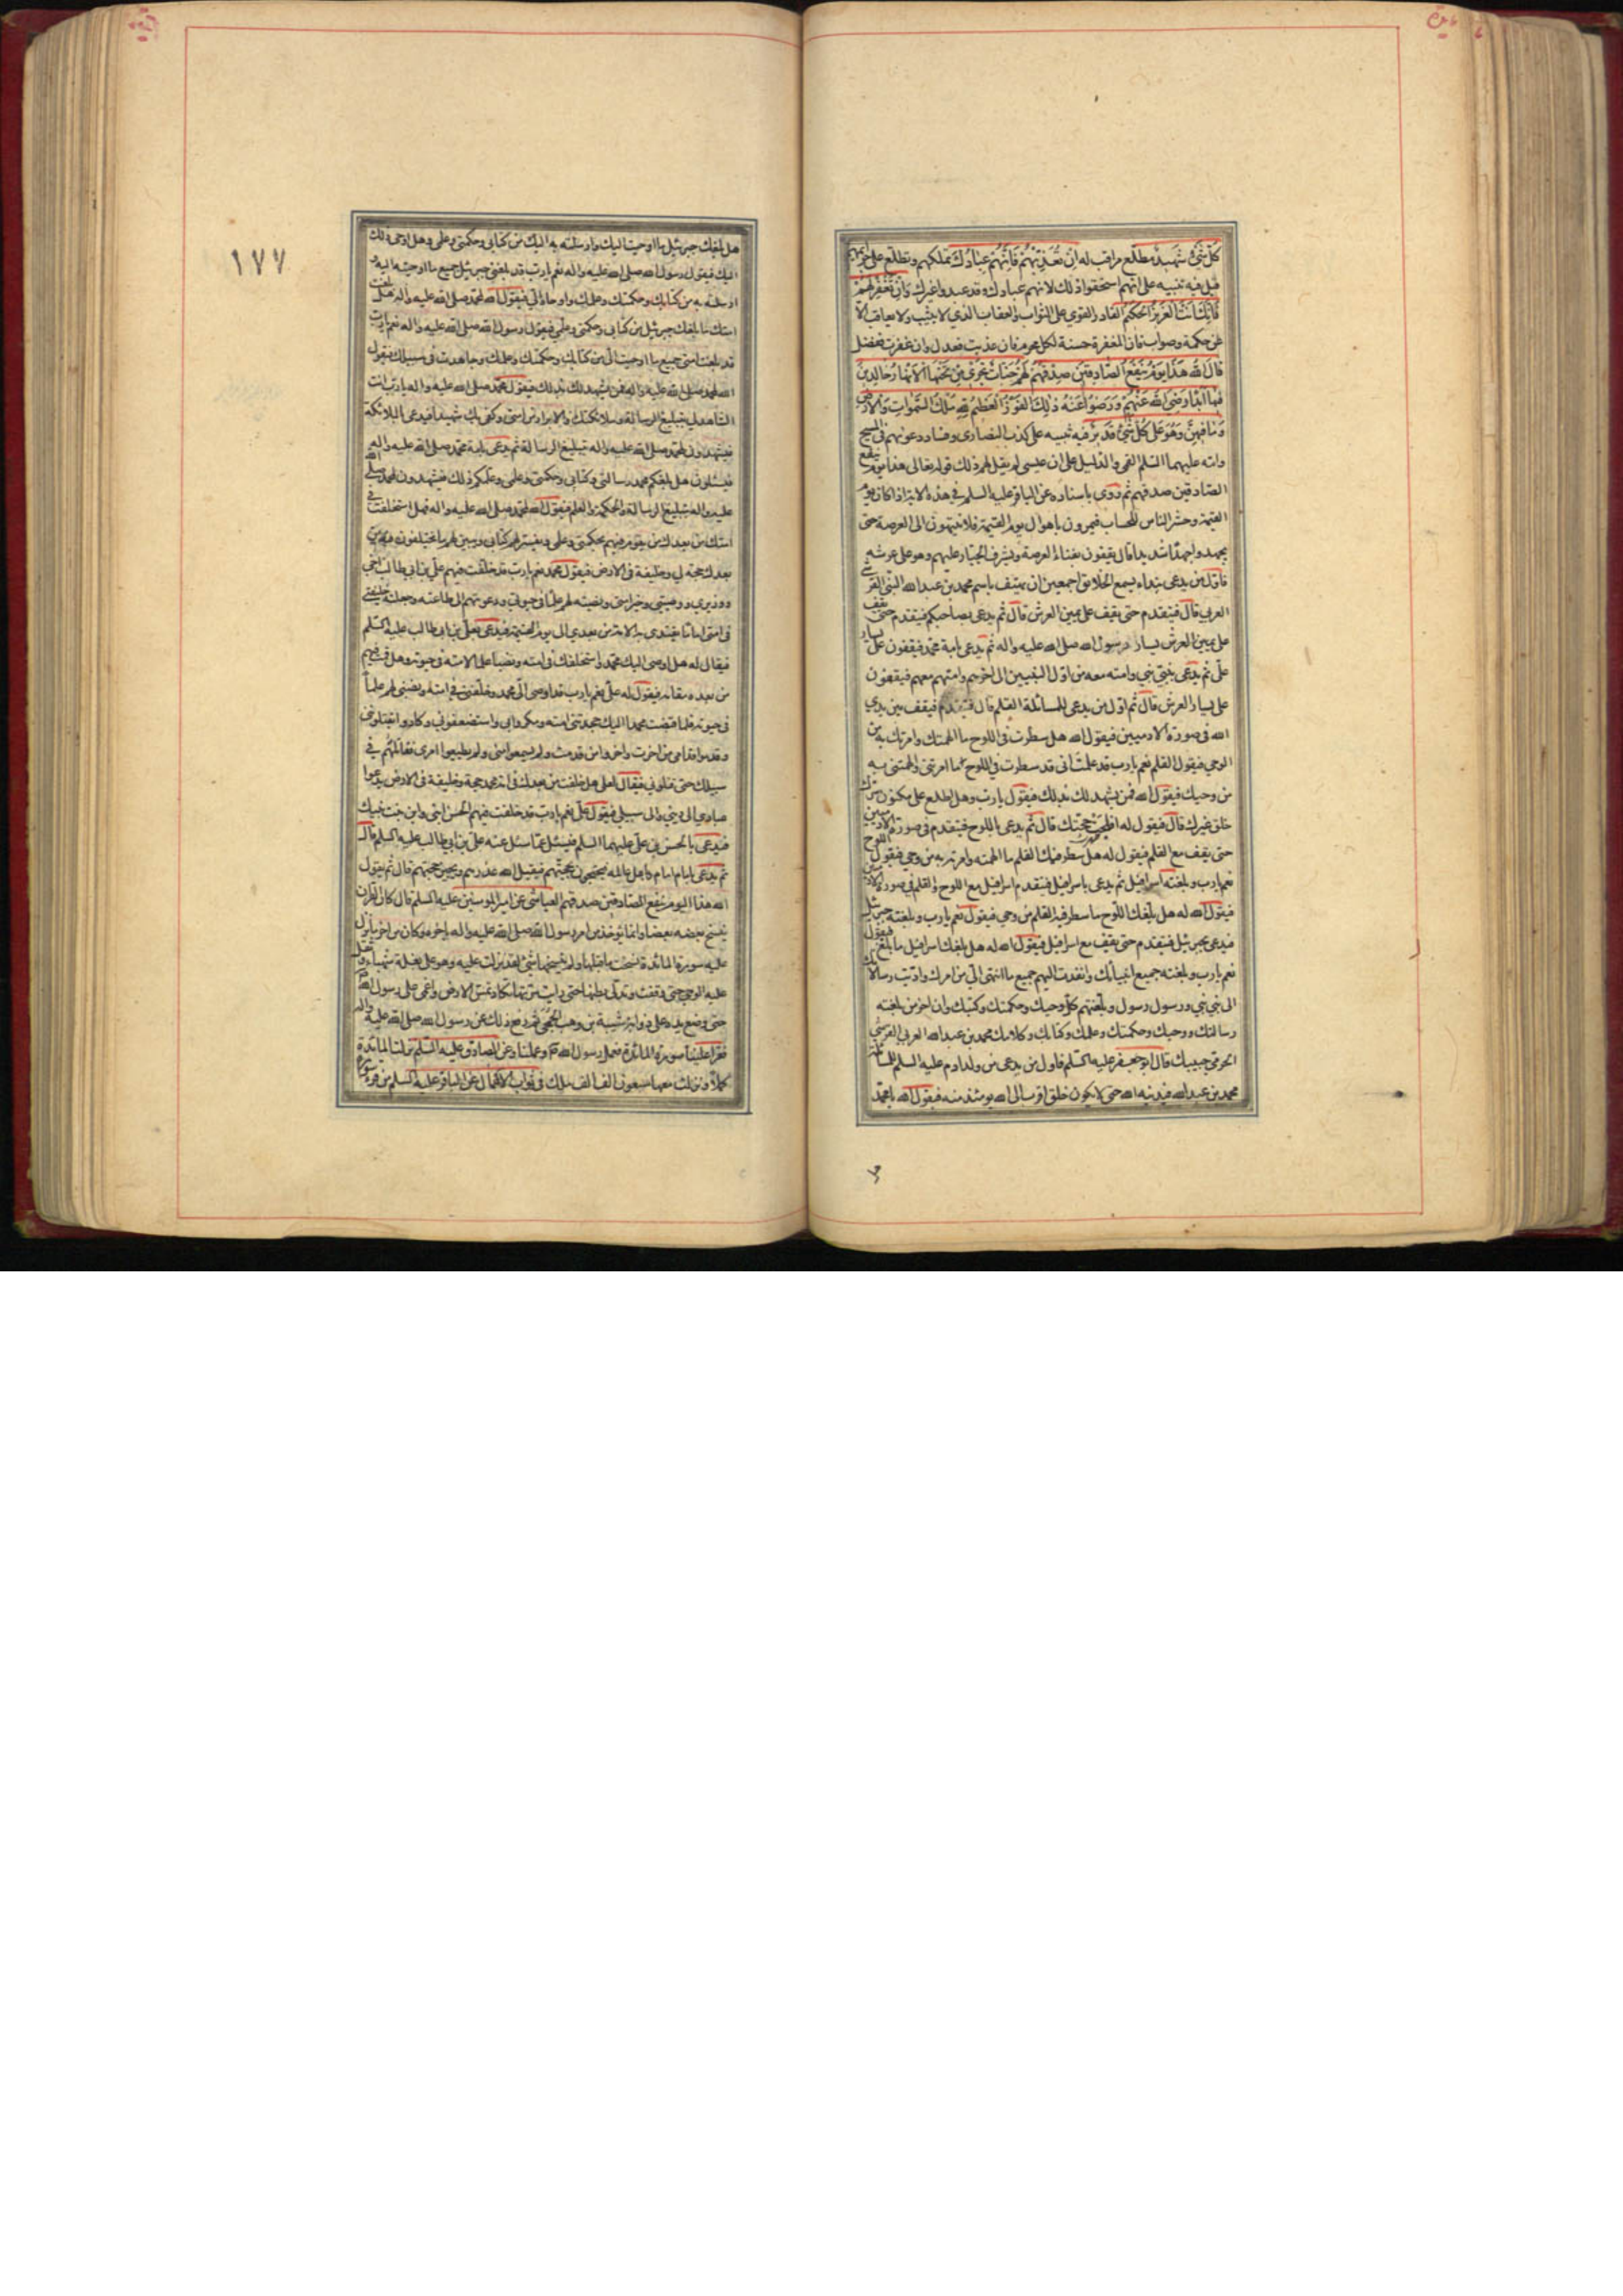 كل شيء شهيد مطلع مراقب له ان تعذبهم فانهم عبادك تملكهم وتطلع على جرائمهم
قيل فيه تنبيه على انهم استحقوا ذلك لانهم عبادك وقد عبدوا غيرك وان تغفر لهم
فانك انت العزيز الحكيم القادر القوي على الثواب والعقاب الذي لا يثيب ولا يعاقب الا
عن حكمة وصواب فان المغفرة حسنة لكل مجرم فان عذبت فعدل وان غفرت ففضل
قال الله هذا يوم ينفع الصادقين صدقهم لهم جنات تجري من تحتها الانهار خالدين
فيها ابدا رضي الله عنهم ورضوا عنه ذلك الفوز العظيم لله ملك السموات والارض
وما فيهن وهو على كل شيء قدير فيه تنبيه على كذب النصارى وفساد دعويهم في المسيح
وامه عليهما السلم القمي والدليل على ان عيسى لم يقل لهم ذلك قوله تعالى هذا يوم ينفع
الصادقين صدقهم ثم روى باسناده عن الباقر عليه السلم في هذه الاية اذا كان يوم
القيمة وحشر الناس للحساب فيمرون باهوال يوم القيمة فلا ينتهون الى العرصة حتى
يجهدوا جهدا شديدا قال يقفون بفناء العرصة ويشرف الجبار عليهم وهو على عرشه
فاول من يدعى بنداء يسمع الخلايق اجمعين ان يهتف باسم محمد بن عبد الله النبي القرشي
العربي قال فيتقدم حتى يقف على يمين العرش قال ثم يدعى بصاحبكم فيتقدم حتى يقف
على يسار رسول الله صلى الله عليه واله ثم يدعى بامة محمد فيقفون على يسار
علي ثم يدعى بنبي نبي وامته معه من اول النبيين الى اخرهم وامتهم معهم فيقفون
على يسار العرش قال ثم اول من يدعى للمسائلة القلم قال فيتقدم فيقف بين يدي
الله في صورة الادميين فيقول الله هل سطرت في اللوح ما الهمتك وامرتك به من
الوحي فيقول القلم نعم يا رب قد علمت اني قد سطرت في اللوح ما امرتني والهمتني به
من وحيك فيقول الله فمن يشهد لك بذلك فيقول يا رب وهل اطلع على مكنون سرك
خلق غيرك قال فيقول له افلحت حجتك قال ثم يدعى باللوح فيتقدم في صورة الادميين
حتى يقف مع القلم فيقول له هل سطر فيك القلم ما الهمته وامرته به من وحي فيقول اللوح
نعم يا رب وبلغته اسرافيل ثم يدعى باسرافيل فيتقدم اسرافيل مع اللوح والقلم في صورة الادميين
فيقول الله له هل بلغك اللوح ما سطر فيه القلم من وحي فيقول نعم يا رب وبلغته جبرئيل
فيدعى بجبرئيل فيتقدم حتى يقف مع اسرافيل فيقول الله له هل بلغك اسرافيل ما بلغ فيقول
نعم يا رب وبلغته جميع انبيائك وانفذت اليهم جميع ما انتهى الي من امرك واديت رسالاتك
الى نبي نبي ورسول رسول وبلغتهم كل وحيك وحكمتك وكتبك وان اخر من بلغته
رسالتك ووحيك وحكمتك وعلمك وكتابك وكلامك محمد بن عبد الله العربي القرشي
الحرمي حبيبك قال ابو جعفر عليه السلم فاول من يدعى من ولد ادم عليه السلم للمسائلة
محمد بن عبد الله فيدنيه الله حتى لا يكون خلق اقرب الى الله يومئذ منه فيقول الله يا محمد
هل
١٧٧
هل بلغك جبرئيل ما اوحيت اليك وارسلته به اليك من كتابي وحكمتي وعلمي وهل اوحى ذلك
اليك فيقول رسول الله صلى الله عليه واله نعم يا رب قد بلغني جبرئيل جميع ما اوحيته اليه و
ارسلته به من كتابك وحكمتك وعلمك واوحاه الي فيقول الله لمحمد صلى الله عليه واله هل بلغت
امتك ما بلغك جبرئيل من كتابي وحكمتي وعلمي فيقول رسول الله صلى الله عليه واله نعم يا رب
قد بلغت امتي جميع ما اوحيت الي من كتابك وحكمتك وعلمك وجاهدت في سبيلك فيقول
الله لمحمد صلى الله عليه واله فمن يشهد لك بذلك فيقول محمد صلى الله عليه واله يا رب انت
الشاهد لي بتبليغ الرسالة وملائكتك والابرار من امتي وكفى بك شهيدا فيدعى بالملائكة
فيشهدون لمحمد صلى الله عليه واله بتبليغ الرسالة ثم يدعى بامة محمد صلى الله عليه واله
فيسئلون هل بلغكم محمد رسالتي وكتابي وحكمتي وعلمي وعلمكم ذلك فيشهدون لمحمد صلى الله
عليه واله بتبليغ الرسالة والحكمة والعلم فيقول الله لمحمد صلى الله عليه واله فهل استخلفت في
امتك من بعدك من يقوم فيهم بحكمتي وعلمي ويفسر لهم كتابي ويبين لهم ما يختلفون فيه من
بعدك حجة لي وخليفة في الارض فيقول محمد نعم يا رب قد خلفت فيهم علي بن ابي طالب اخي
ووزيري ووصيي وخير امتي ونصبته لهم علما في حيوتي ودعوتهم الى طاعته وجعلته خليفتي
في امتي اماما يقتدي به الامة من بعدي الى يوم القيمة فيدعى بعلي بن ابي طالب عليه السلم
فيقال له هل اوصى اليك محمد واستخلفك في امته ونصبك علما لامته في حيوته وهل قمت فيهم
من بعده مقامه فيقول له علي نعم يا رب قد اوصى الي محمد وخلفني في امته ونصبني لهم علما
في حيوته فلما قبضت محمدا اليك جحدتني امته ومكروا بي واستضعفوني وكادوا يقتلونني
وقدموا قدامي من اخرت واخروا من قدمت ولم يسمعوا مني ولم يطيعوا امري فقاتلتهم في
سبيلك حتى قتلوني فيقال لعلي هل خلفت من بعدك في امة محمد حجة وخليفة في الارض يدعوا
عبادي الى ديني والى سبيلي فيقول علي نعم يا رب قد خلفت فيهم الحسن ابني وابن بنت نبيك
فيدعى بالحسن بن علي عليهما السلم فيسئل عما سئل عنه علي بن ابي طالب عليه السلم قال
ثم يدعى بامام امام وباهل عالمه فيحتجون بحجتهم فيقبل الله عذرهم ويجيز حجتهم قال ثم يقول
الله هذا اليوم ينفع الصادقين صدقهم العياشي عن امير المومنين عليه السلم قال كان القران
ينسخ بعضه بعضا وانما يؤخذ من امر رسول الله صلى الله عليه واله باخره وكان من اخر ما نزل
عليه سورة المائدة نسخت ما قبلها ولم ينسخها شيء لقد نزلت عليه وهو على بغلة شهباء وثقل
عليه الوحي حتى وقفت وتدلى بطنها حتى رايت سرتها تكاد تمس الارض واغمي على رسول الله
حتى وضع يده على ذوابة شيبة بن وهب الجمحي ثم رفع ذلك عن رسول الله صلى الله عليه واله
فقرا علينا سورة المائدة فعمل رسول الله وعملنا وعن الصادق عليه السلم نزلت المائدة
كملا ونزلت معها سبعون الف الف ملك في ثواب الاعمال عن الباقر عليه السلم من قرء سورة